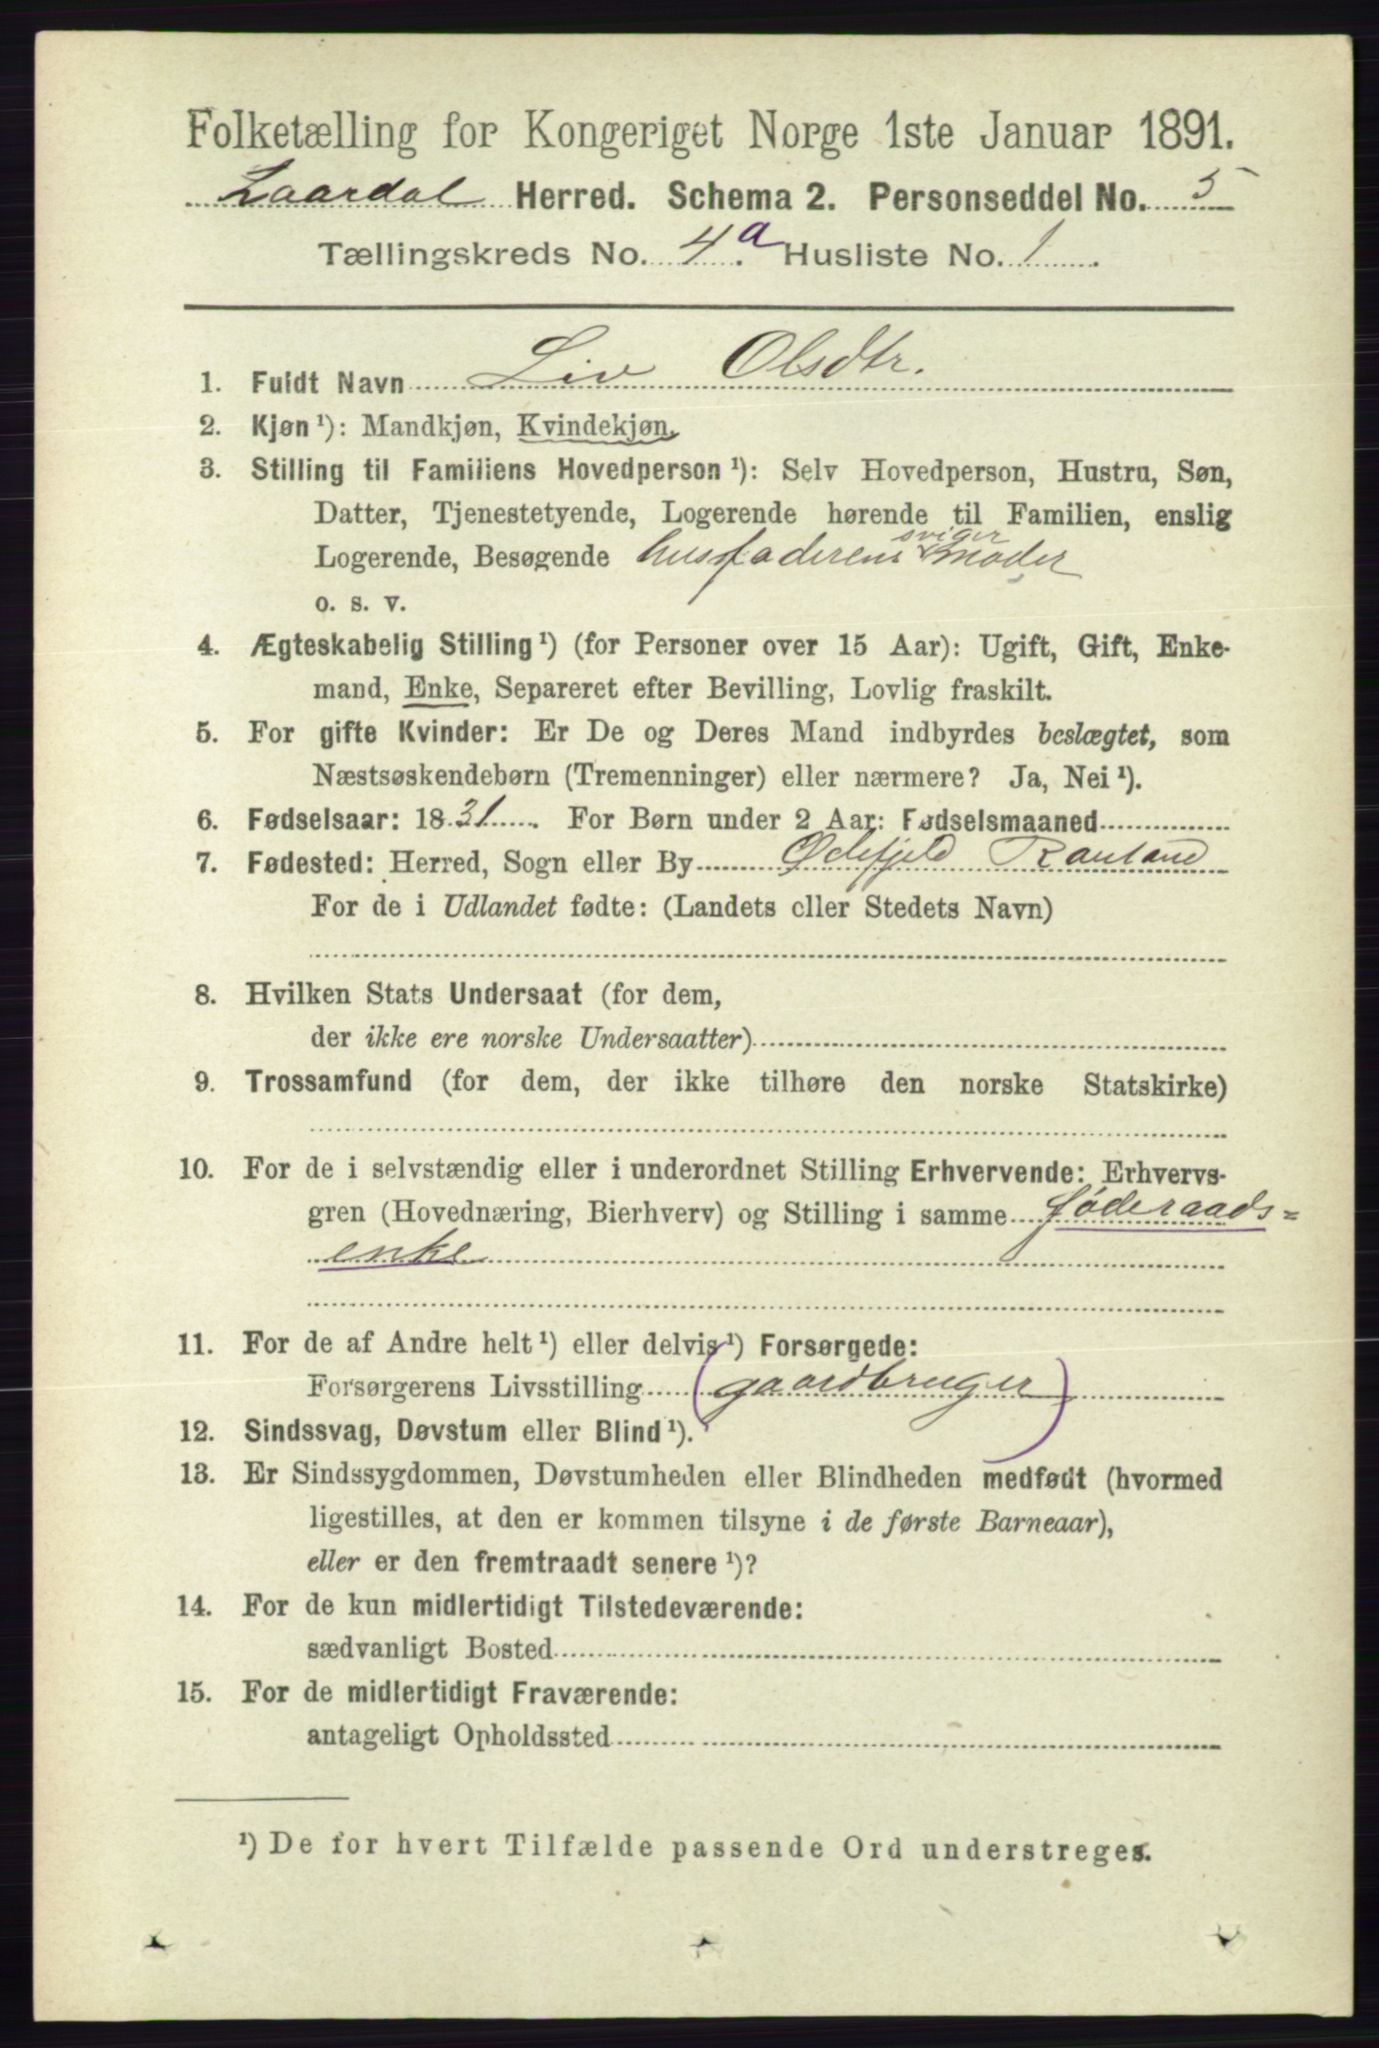 Folketælling for Kongeriget Norge 1ste Januar 1891.
Laardal Herred. Schema 2. Personseddel No. 5
Tællingskreds No. 4a. Husliste No. 1
1. Fuldt Navn Liv Olsdtr.
2. Kjøn ¹): Mandkjøn, Kvindekjøn.
3. Stilling til Familiens Hovedperson ¹): Selv Hovedperson, Hustru, Søn,
Datter, Tjenestetyende, Logerende hørende til Familien, enslig
Logerende, Besøgende husfaderens svigermoder
o. s. v.
4. Ægteskabelig Stilling ¹) (for Personer over 15 Aar): Ugift, Gift, Enke-
mand, Enke, Separeret efter Bevilling, Lovlig fraskilt.
5. For gifte Kvinder: Er De og Deres Mand indbyrdes beslægtet, som
Næstsøskendebørn (Tremenninger) eller nærmere? Ja, Nei ¹).
6. Fødselsaar: 1831. For Børn under 2 Aar: Fødselsmaaned
7. Fødested: Herred, Sogn eller By Øifjeld Rauland
For de i Udlandet fødte: (Landets eller Stedets Navn)
8. Hvilken Stats Undersaat (for dem,
der ikke ere norske Undersaatter)
9. Trossamfund (for dem, der ikke tilhøre den norske Statskirke)
10. For de i selvstændig eller i underordnet Stilling Erhvervende: Erhvervs-
gren (Hovednæring, Bierhverv) og Stilling i samme føderaads=
enke
11. For de af Andre helt ¹) eller delvis ¹) Forsørgede:
Forsørgerens Livsstilling (gaardbruger)
12. Sindssvag, Døvstum eller Blind ¹).
13. Er Sindssygdommen, Døvstumheden eller Blindheden medfødt (hvormed
ligestilles, at den er kommen tilsyne i de første Barneaar),
eller er den fremtraadt senere ¹)?
14. For de kun midlertidigt Tilstedeværende:
sædvanligt Bosted
15. For de midlertidigt Fraværende:
antageligt Opholdssted
¹) De for hvert Tilfælde passende Ord understreges.